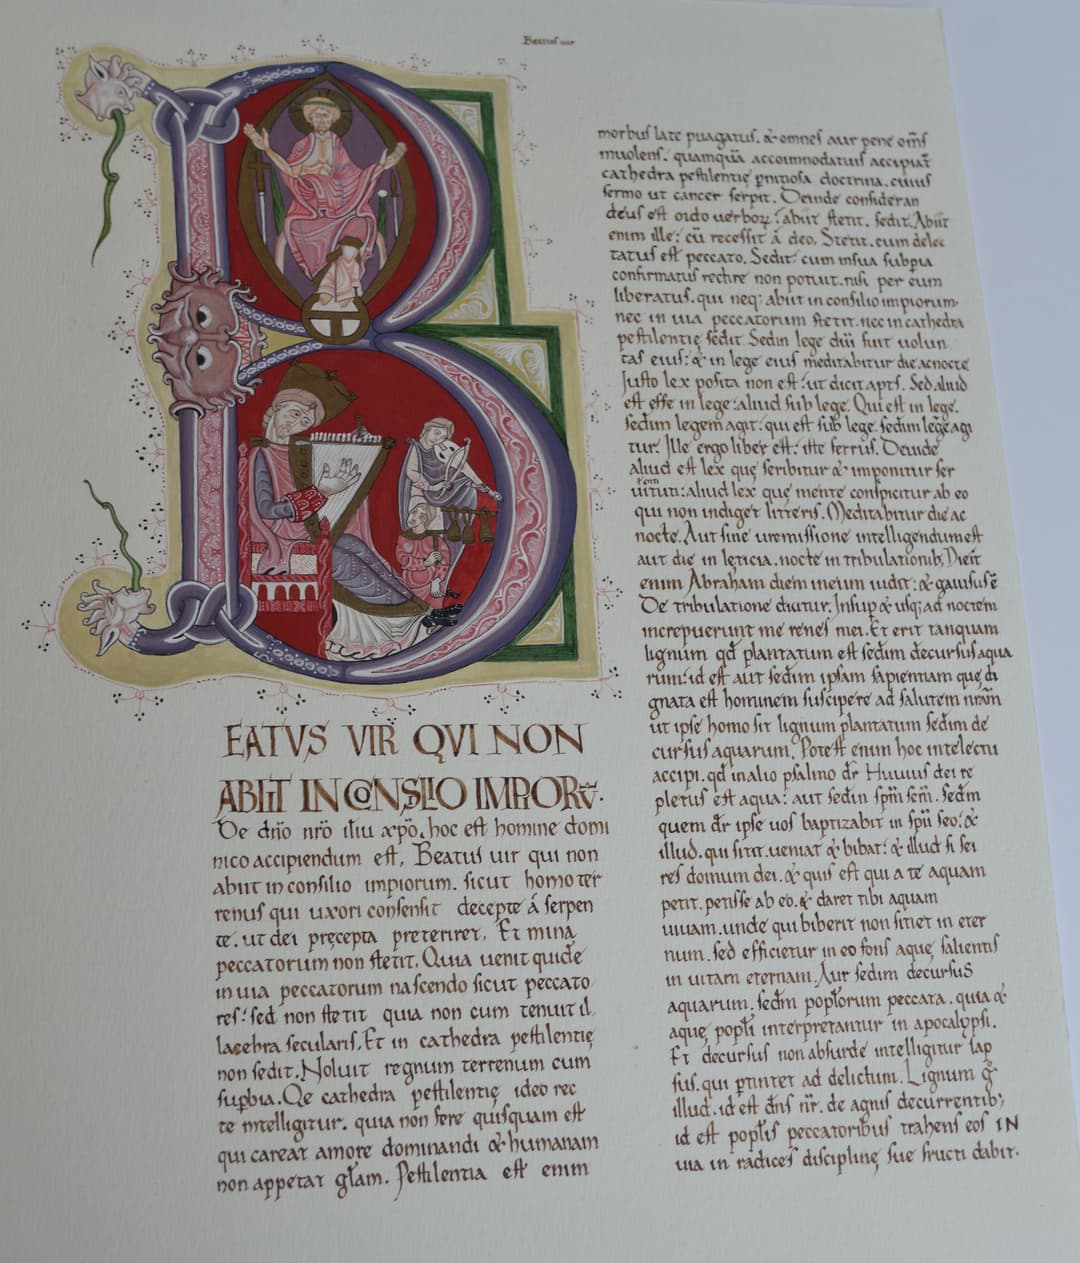 Beatus uir
B
EATVS VIR QVI NON
ABIIT IN CONSILIO IMPIORV̄.
De dn̄o nr̄o ih̄u xp̄o. hoc est homine domi
nico accipiendum est. Beatus uir qui non
abiit in consilio impiorum. sicut homo ter
renus qui uxori consensit decepte á serpen
te. ut dei pręcepta preteriret. Et in uia
peccatorum non stetit. Quia uenit quidē
in uia peccatorum nascendo sicut peccato
res: sed non stetit quia non eum tenuit il
lacebra secularis. Et in cathedra pestilentię
non sedit. Noluit regnum terrenum cum
supbia. Qe cathedra pestilentię ideo rec
te intelligitur. quia non fere quisquam est
qui careat amore dominandi & humanam
non appetat glam̄. Pestilentia est enim
morbus late puagatus. & omnes aut pene om̄s
inuolens. quamquā accommodatius accipiat̄
cathedra pestilentię pnitiosa doctrina. cuius
sermo ut cancer serpit. Deinde consideran
deus est ordo uerboꝝ: abiit stetit. sedit. Abiit
enim ille: cū recessit á deo. Stetit. cum delec
tatus est peccato. Sedit cum insua supbia
confirmatus redire non potuit. nisi per eum
liberatus. qui neq; abiit in consilio impiorum.
nec in uia peccatorum stetit. nec in cathedra
pestilentię sedit. Sed in lege dn̄i fuit uolun
tas eius: & in lege eius meditabitur die ac nocte
Justo lex posita non est: ut dicit apt̄s. Sed aliud
est esse in lege: aliud sub lege. Qui est in lege.
sedm legem agit. qui est sub lege. sedm lege agi
tur. Ille ergo liber est: iste seruus. Deinde
aliud est lex quę scribitur & imponitur ser
uienti: aliud lex quę mente conspicitur ab eo
qui non indiget litteris. Meditabitur die ac
nocte. Aut sine intermissione intelligendum est
aut die in lęticia. nocte in tribulationib; Dicit̄
enim Abraham diem meum uidit: & gauisus ē
De tribulatione dicitur. Insup & usq; ad noctem
increpuerunt me renes mei. Et erit tanquam
lignum qd̄ plantatum est sedm decursus aqua
rum: id est aut sedm ipsam sapientiam quę di
gnata est hominem suscipere ad salutem nr̄am
ut ipse homo sit lignum plantatum sedm de
cursus aquarum. Potest enim hoc intelectu
accipi. qd̄ in alio psalmo dr̄ Fluuius dei re
pletus est aqua: aut sedm sp̄m sc̄m. Sedm
quem dr̄ ipse uos baptizabit in spū sc̄o: &
illud. qui sitit. ueniat & bibat: & illud si sci
res domum dei. & quis est qui a te aquam
petit. petisse ab eo. & daret tibi aquam
uiuam. unde qui biberit non sitiet in eter
num. sed efficietur in eo fons aquę salientis
in uitam eternam. Aut sedm decursus
aquarum. sedm poplorum peccata. quia &
aquę popli interpretantur in apocalypsi.
Et decursus non absurde intelligitur lap
sus. qui ptinet ad delictum. Lignum g̊
illud. id est dn̄s nr̄. de aquis decurrentib;
id est poplis peccatoribus trahens eos IN
uia in radices disciplinę sue fructū dabit.